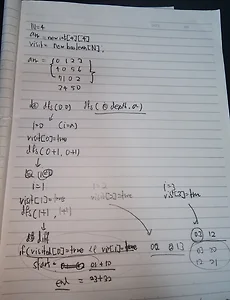 N=4
arr = new int[4][4]
visit = new boolean[N].
arr = { 0 1 2 3
4 0 5 6
7 1 0 2
3 4 5 0 }
dfs(0,0) dfs(depth, a)
i=0 (i=a)
visit[0]=true
dfs(0+1, 0+1)
i=1 i=2 i=3
visit[1]=true visit[2]=true visit[3]=true
dfs(1+1, 1+1)
diff
if(visited[0]=true && vi[1]=true
02 13
03 12
start = 01+10
03 20
12 21
end = 23+32